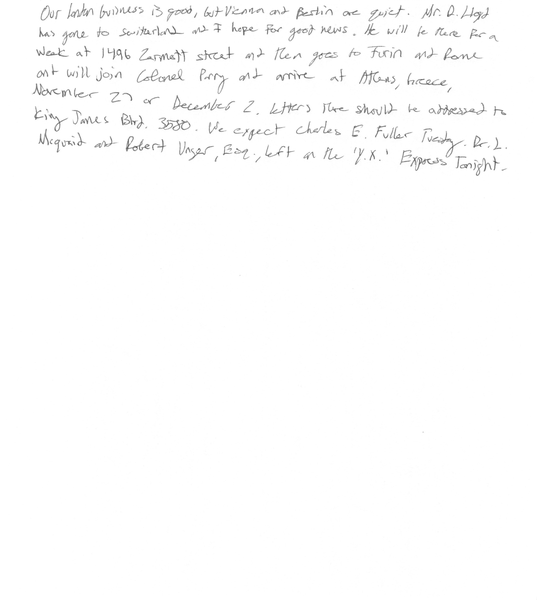 Our London business is good, but Vienna and Berlin are quiet. Mr. D. Lloyd
has gone to Switzerland and I hope for good news. He will be there for a
week at 1496 Zermott street and then goes to Turin and Rome
and will join Colonel Parry and arrive at Athens, Greece,
November 27 or December 2. Letters there should be addressed to
King James Blvd. 3580. We expect Charles E. Fuller Tuesday. Dr. L.
Mcquaid and Robert Unger, Esq., left on the 'Y.X.' Express Tonight.